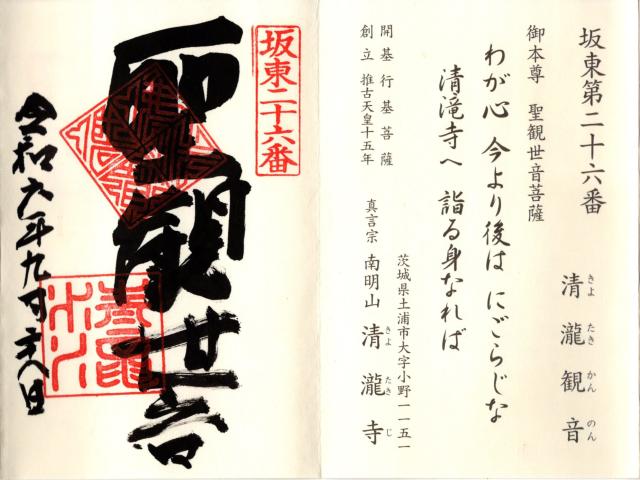 坂東第二十六番
清瀧観音
きよ たき かん のん
御本尊 聖観世音菩薩
わが心 今より後は にごらじな
清滝寺へ 詣る身なれば
開基 行基菩薩
創立 推古天皇十五年
茨城県土浦市大字小野一一五一
真言宗 南明山 清瀧寺
きよ たき じ
坂東二十六番
聖観世音
令和六年九月 八日